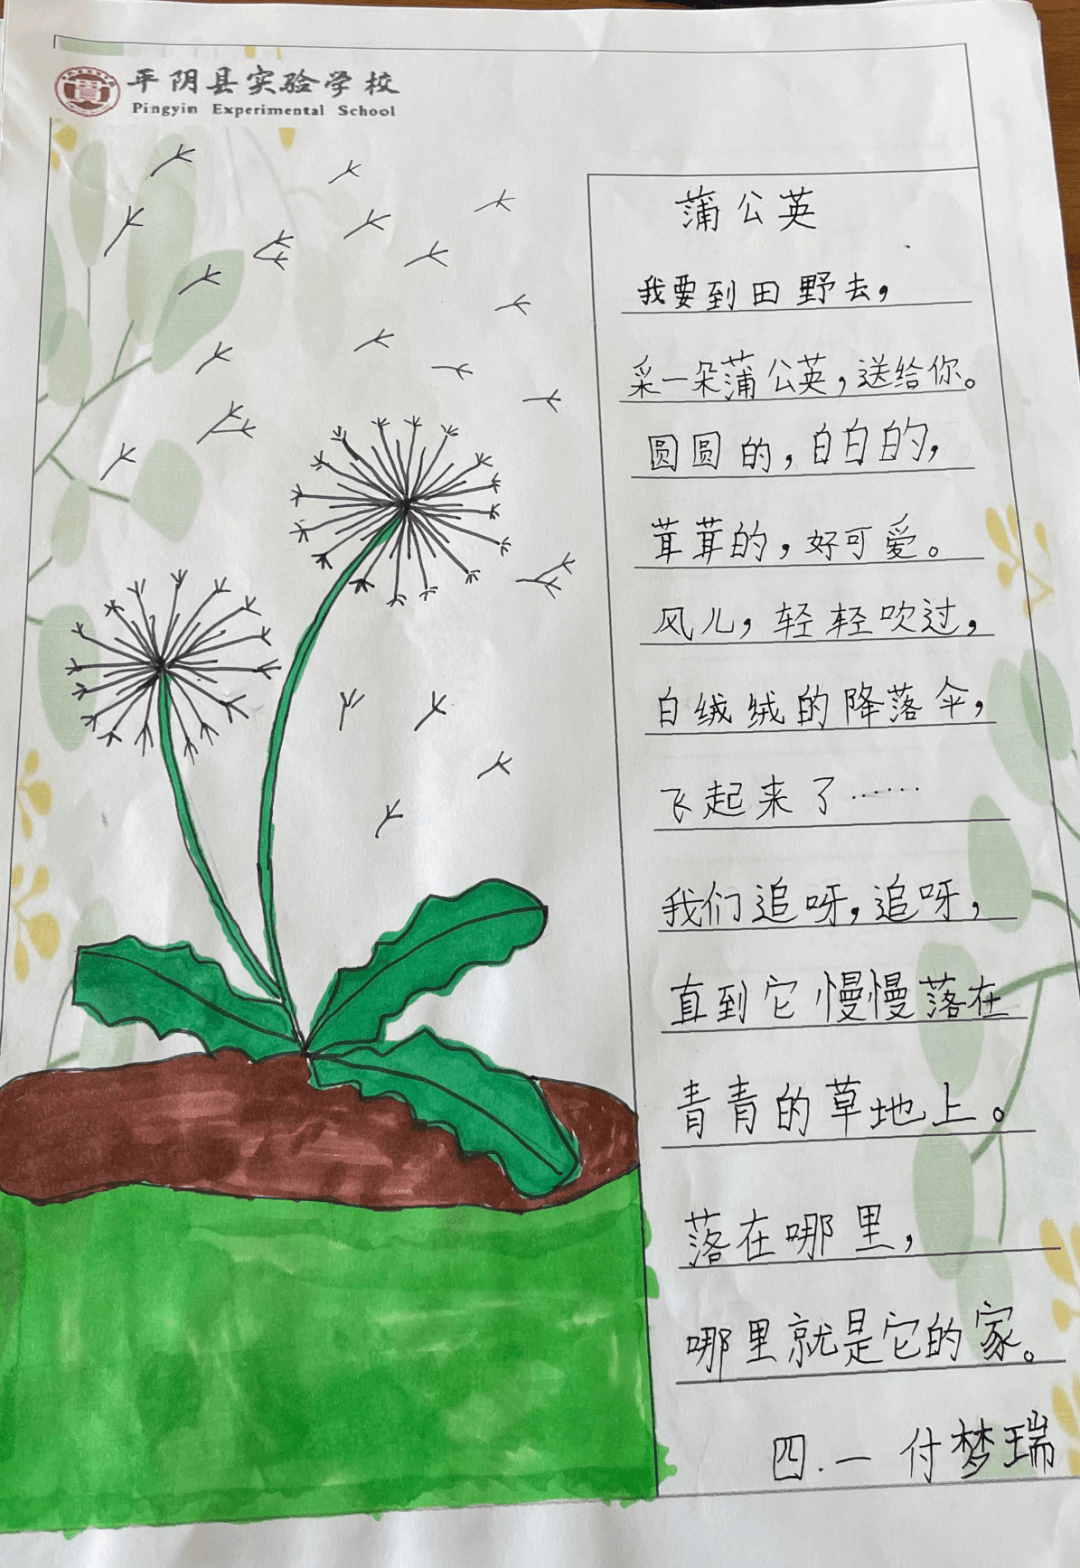 平阴县实验学校
Pingyin Experimental School
蒲公英
我要到田野去，
采一朵蒲公英，送给你。
圆圆的，白白的，
茸茸的，好可爱。
风儿，轻轻吹过，
白绒绒的降落伞，
飞起来了……
我们追呀，追呀，
直到它慢慢落在
青青的草地上。
落在哪里，
哪里就是它的家。
四.一 付梦瑞